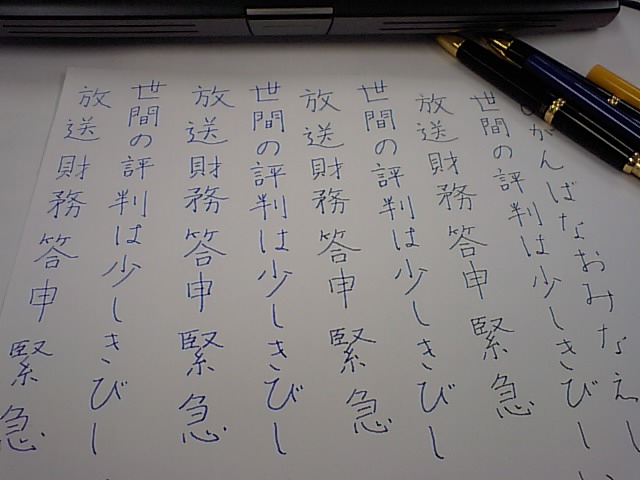 ひがんばなおみなえし
世間の評判は少しきびしい
放送財務答申緊急
世間の評判は少しきびし
放送財務答申緊急
世間の評判は少しきびし
放送財務答申緊急
世間の評判は少しきびし
放送財務答申緊急